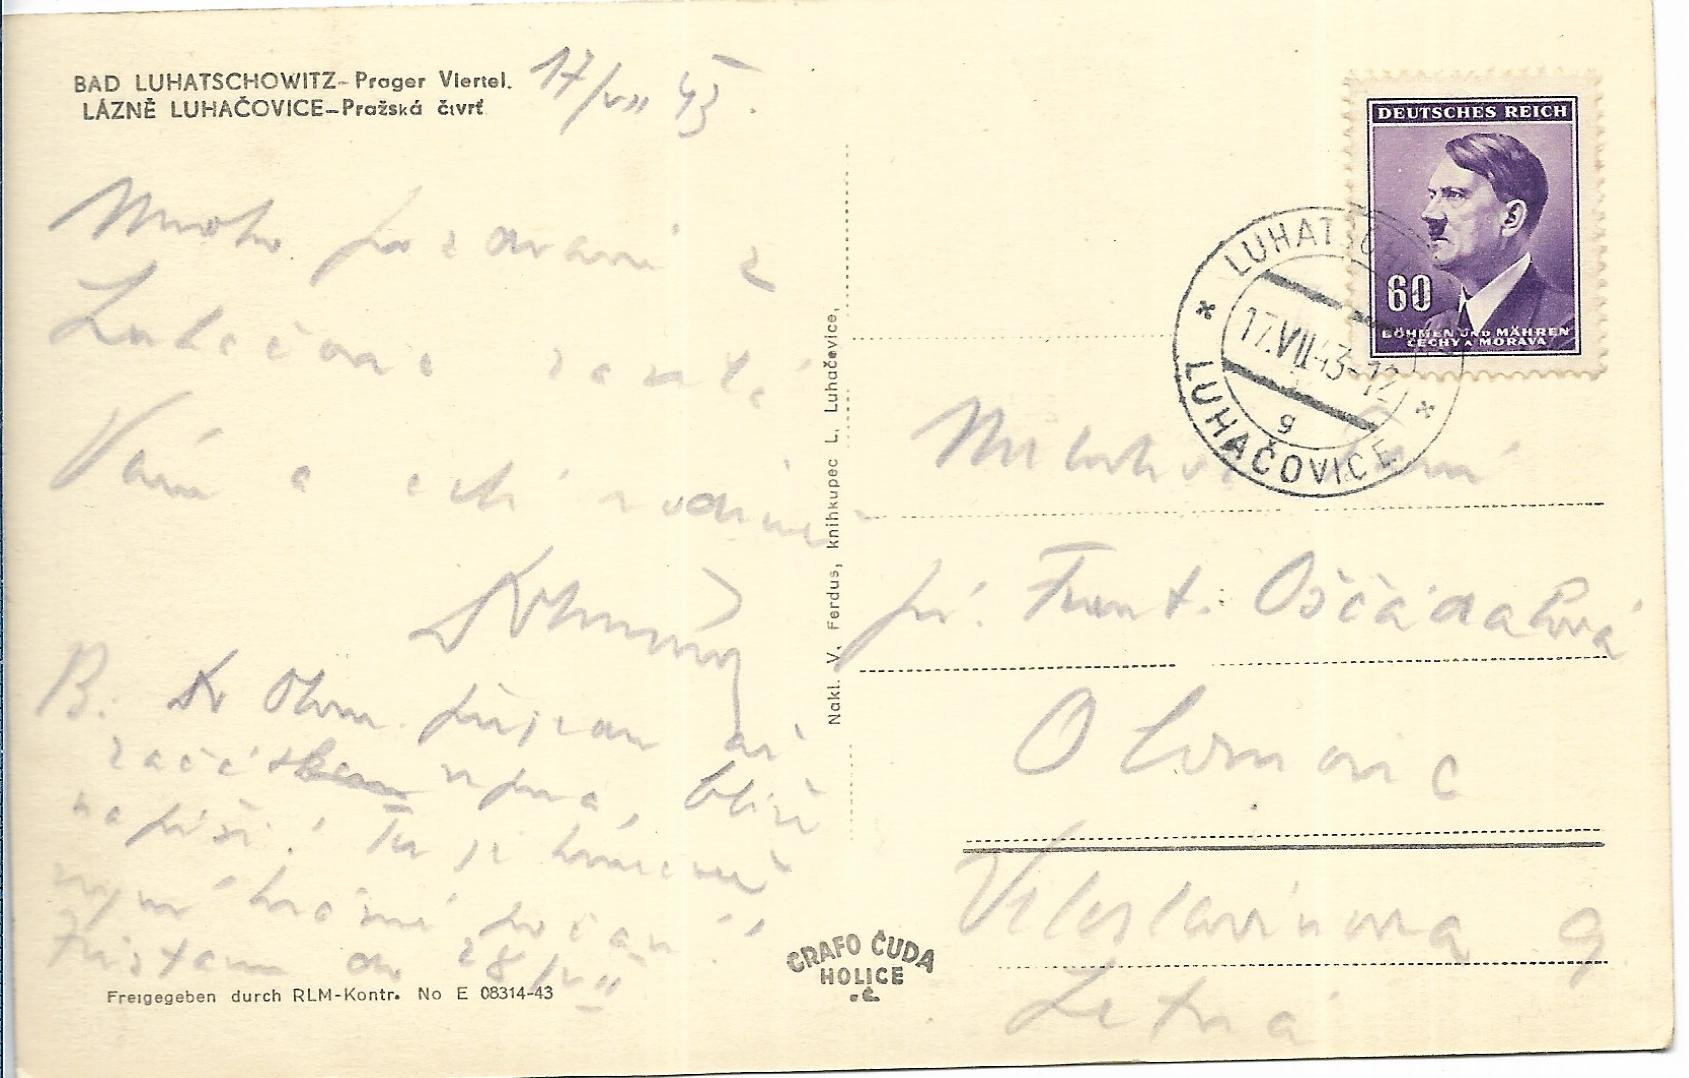 BAD LUHATSCHOWITZ-Prager Viertel.
LÁZNĚ LUHAČOVICE-Pražská čtvrť
17/VII 43.
Mnoho pozdravů z
Luhačovic zasílá
Vám a celé rodině
B. Do Olom. přijedu až
začátkem srpna, blíže
napíši! Tu je
nyní krásné počasí!
Zůstanu do 28/VII
Freigegeben durch RLM-Kontr. No E 08314-43
Nakl. V. Ferdus, knihkupec L. Luhačovice,
GRAFO ČUDA
HOLICE
DEUTSCHES REICH
60
BÖHMEN UND MÄHREN
ČECHY A MORAVA
LUHATSCHOWITZ
17.VII.43-12
g
LUHAČOVICE
paní
Frant. Oščádalová
Olomouc
Veleslavínova 9
Letná